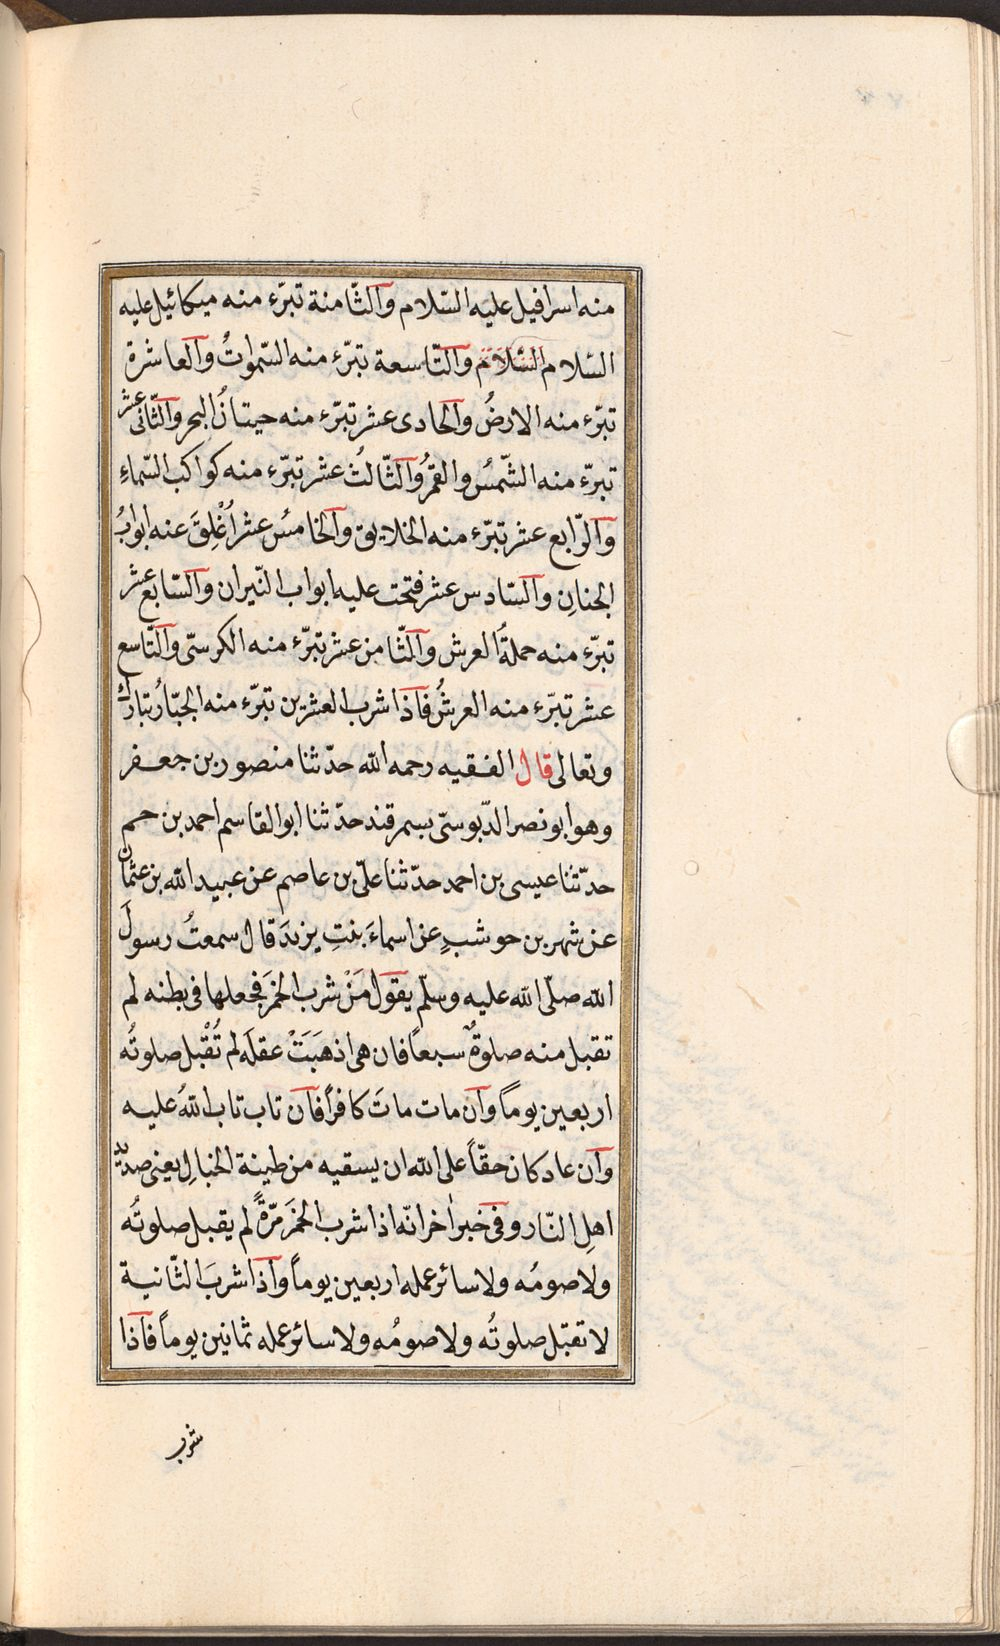 منه اسرافيل عليه السّلام والثّامنة تبرّء منه ميكائيل عليه
السّلام السّلام والتّاسعة تبرّء منه السّموات والعاشرة
تبرّء منه الارضُ والحادى عشر تبرّء منه حيتانُ البحر والثّانى عشر
تبرّء منه الشّمسُ والقمرُ والثّالثُ عشر تبرّء منه كواكب السّماءِ
والرّابع عشر تبرّء منه الخلايق والخامس عشر اُغْلِقَ عنه ابوابُ
الجنانِ والسّادس عشر فتحت عليه ابواب النّيران والسّابع عشر
تبرّء منه حملةُ العرش والثّامن عشر تبرّء منه الكرسىّ والتّاسع
عشر تبرّء منه العرشُ فاذا شرب العشرين تبرّء منه الجبّارُ تبارك
وتعالى قال الفقيه رحمه الله حدّثنا منصور بن جعفر
وهو ابو نصر الدّبوسىّ بسمرقند حدّثنا ابو القاسم احمد بن حم
حدّثنا عيسى بن احمد حدّثنا علىّ بن عاصم عن عبيد الله بن عثمان
عن شهر بن حوشبٍ عن اسماءَ بنتِ يزيدَ قال سمعتُ رسولَ
الله صلّى الله عليه وسلّم يقول مَنْ شرب الخمرَ فجعلها فى بطنه لم
تقبل منه صلوةٌ سبعاً فان هى اذهَبَتْ عقلَه لم تُقْبل صلوتُه
اربعين يوماً وان مات ماتَ كافراً فان تاب تاب اللهُ عليه
وان عاد كان حقّاً على الله ان يسقيه من طينة الخبالِ يعنى صديد
اهلِ النّار وفى خبر اٰخر انّه اذا شرب الخمرَ مرّةً لم يقبل صلوتُه
ولا صومُه ولا سائر عمله اربعين يوماً واذا شربَ الثّانية
لا تقبّل صلوتُه ولا صومُه ولا سائر عمله ثمانين يوماً فاذا
شرب